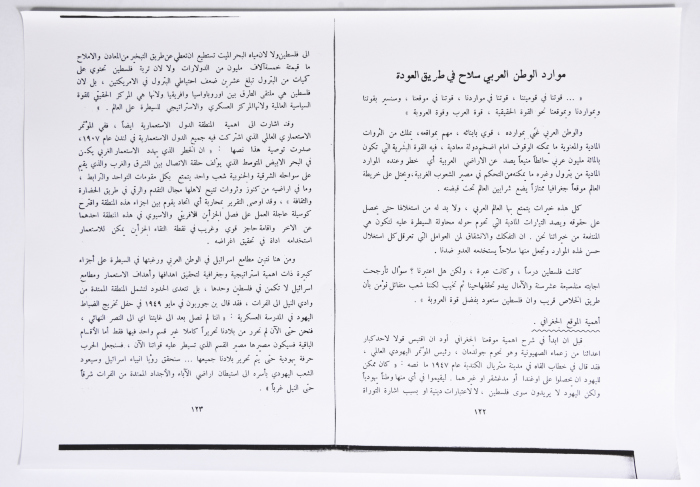 موارد الوطن العربي سلاح في طريق العودة
« ... قوتنا في قوميتنا ، قوتنا في مواردنا ، قوتنا في موقعنا ، وسنسير بقوتنا
ومواردنا وموقعنا نحو القوة الحقيقية ، قوة العرب وقوة العروبة »
والوطن العربي غني بموارده ، قوي بابنائه ، مهم بمواقعه، يملك من الثروات
المادية والمعنوية ما يمكنه الوقوف امام اضخم دولة معادية ، ففيه القوة البشرية التي تكون
بالمائة مليون عربي حائطاً منيعاً يصد عن الاراضي العربية أي خطر وعنده الموارد
المادية من بترول وغيره ما يمكنه من التحكم في مصير الشعوب الغربية، ويحتل على خريطة
العالم موقعاً جغرافيا ممتازاً يضع شرايين العالم تحت قبضته .
كل هذه خيرات يتمتع بها العالم العربي ، ولا بد له من استغلالها حتى يحصل
على حقوقه ويصد التيارات المادية التي تحوم حوله محاولة السيطرة عليه لتكون هي
المنتفعة من خيراتنا نحن . ان التفكك والانشقاق لمن العوامل التي تعرقل كل استغلال
حسن لهذه الموارد وتجعل منها سلاحاً يستخدمه العدو ضدنا .
كانت فلسطين درساً ، وكانت عبرة ، ولكن هل اعتبرنا ? سؤال تأرجحت
اجابته منذ سبعة عشر سنة والآمال يبدو تحققها حيناً ثم تخيب لكننا شعب متفائل نؤمن بأن
طريق الخلاص قريب وان فلسطين ستعود بفضل قوة العروبة » .
أهمية الموقع الجغرافي .
قبل ان ابدأ في شرح اهمية موقعنا الجغرافي أود ان اقتبس قولا لاحد كبار
اعدائنا من زعماء الصهيونية وهو ناحوم جولدمان ، رئيس المؤتمر اليهودي العالمي ،
فقد قال في خطاب القاه في مدينة منتريال الكندية عام ١٩٤٧ ما نصه : « كان يمكن
لليهود ان يحصلوا على اوغندا أو مدغشقر او غيرهما . ليقيموا في أي منها وطناً يهودياً
ولكن اليهود لا يريدون سوى فلسطين . لا لاعتبارات دينية او بسبب اشارة التوراة
١٢٢
الى فلسطين ولا لان مياه البحر الميت تستطيع ان تعطي عن طريق التبخير من المعادن والاملاح
ما قيمته خمسة آلاف مليون من الدولارات ولا لان تربة فلسطين تحتوي على
كميات من البترول تبلغ عشرين ضعف احتياطي البترول في الامريكتين ، بل لان
فلسطين هي ملتقى الطرق بين اوروبا وآسيا وافريقيا ولانها هي المركز الحقيقي للقوة
السياسية العالمية ولانها المركز العسكري والاستراتيجي للسيطرة على العالم . »
وقد اشارت الى اهمية المنطقة الدول الاستعمارية ايضاً ، ففي المؤتمر
الاستعماري العالمي الذي اشتركت فيه جميع الدول الاستعمارية في لندن عام ١٩٠٧،
صدرت توصية هذا نصها : « ان الخطر الذي يهدد الاستعمار الغربي يكمن
في البحر الابيض المتوسط الذي يؤلف حلقة الاتصال بين الشرق والغرب والذي يقيم
على سواحله الشرقية والجنوبية شعب واحد يتمتع بكل مقومات التواحد والترابط ،
وما في اراضيه من كنوز وثروات تتيح لاهلها مجال التقدم والرقي في طريق الحضارة
والثقافة » ، وقد اوصى التقرير بمحاربة أي اتحاد يقوم بين اجزاء هذه المنطقة واقترح
كوسيلة عاجلة العمل على فصل الجزأين الافريقي والاسيوي في هذه المنطقة احدهما
عن الآخر واقامة حاجز قوي وغريب في نقطة التقاء الجزأين يمكن للاستعمار
استخدامه اداة في تحقيق اغراضه .
ومن هنا تتبين مطامع اسرائيل في الوطن العربي ورغبتها في السيطرة على أجزاء
كبيرة ذات اهمية استراتيجية وجغرافية لتحقيق اهدافها وأهداف الاستعمار ومطامع
اسرائيل لا تكمن في فلسطين وحدها ، بل تتعدى الحدود لتشمل المنطقة الممتدة من
وادي النيل الى الفرات ، فقد قال بن جوريون في مايو ١٩٤٩ في حفل تخريج الضباط
اليهود في المدرسة العسكرية : « اننا لم نصل بعد الى غايتنا اي الى النصر النهائي ،
فنحن حتى الآن لم نحرر من بلادنا تحريراً كاملا غير قسم واحد فيها فقط أما الأقسام
الباقية فسيكون مصيرها مصير القسم الذي تسيطر عليه قواتنا الآن . فسنجعل الحرب
حرفة يهودية حتى يتم تحرير بلادنا جميعها ... ستحقق رؤيا انبياء اسرائيل وسيعود
الشعب اليهودي بأسره الى استيطان اراضي الآباء والأجداد الممتدة من الفرات شرقاً
حتى النيل غرباً » .
١٢٣